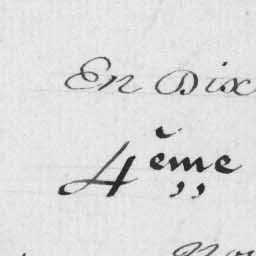 En Dix
4ème